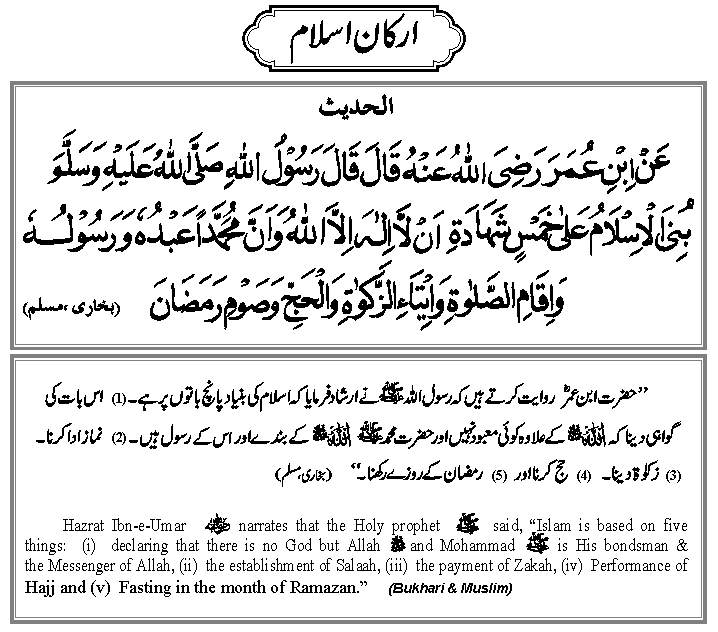 ارکان اسلام
الحدیث
عَنْ اِبْنِ عُمَرَ رَضِیَ اللّٰهُ عَنْهُ قَالَ قَالَ رَسُوْلُ اللّٰهِ صَلَّی اللّٰهُ عَلَیْهِ وَسَلَّوَ
بُنِیَ الْاِسْلَامُ عَلٰی خَمْسٍ شَهَادَةِ اَنْ لَّا اِلٰهَ اِلَّا اللّٰهُ وَاَنَّ مُحَمَّدًا عَبْدُهٗ وَرَسُوْلُهٗ
وَاِقَامِ الصَّلٰوةِ وَاِیْتَاءِ الزَّکٰوةِ وَالْحَجِّ وَصَوْمِ رَمَضَانَ (بخاری ،مسلم)
”حضرت ابن عمرؓ روایت کرتے ہیں کہ رسول اللہ ﷺ نے ارشاد فرمایا کہ اسلام کی بنیاد پانچ باتوں پر ہے۔ (1) اس بات کی
گواہی دینا کہ اللہ کے علاوہ کوئی معبود نہیں اور حضرت محمد ﷺ اللہ کے بندے اور اس کے رسول ہیں۔ (2) نماز ادا کرنا۔
(3) زکوٰۃ دینا۔ (4) حج کرنا اور (5) رمضان کے روزے رکھنا۔“ (بخاری، مسلم)
Hazrat Ibn-e-Umar narrates that the Holy prophet ﷺ said, “Islam is based on five
things: (i) declaring that there is no God but Allah and Mohammad ﷺ is His bondsman &
the Messenger of Allah, (ii) the establishment of Salaah, (iii) the payment of Zakah, (iv) Performance of
Hajj and (v) Fasting in the month of Ramazan.” (Bukhari & Muslim)